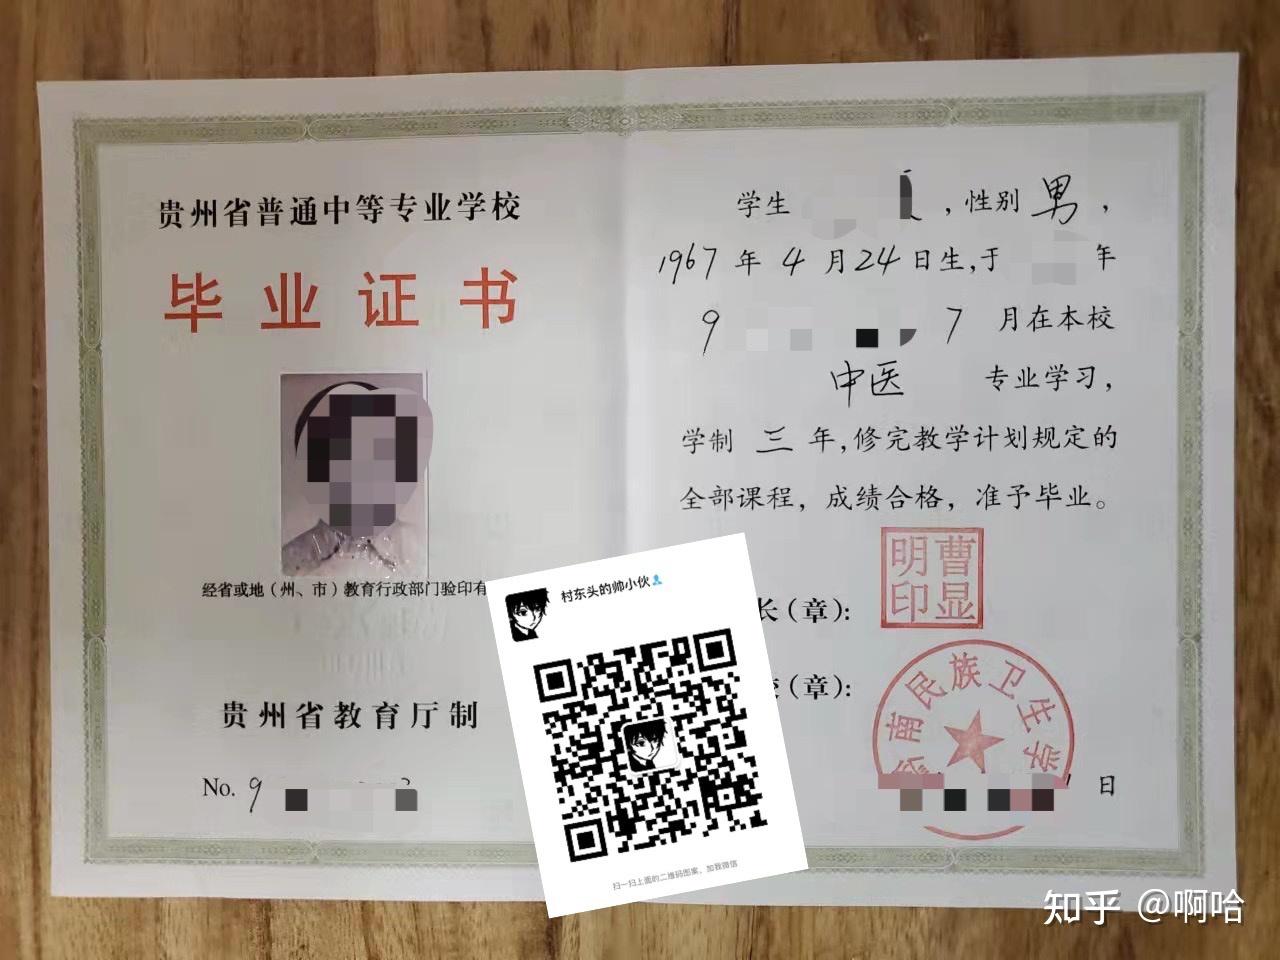 贵州省普通中等专业学校
毕业证书
经省或地（州、市）教育行政部门验印有
贵州省教育厅制
No. 9
学生 ，性别 男 ，
1967 年 4 月 24 日生,于 年
9 7 月在本校
中医 专业学习，
学制 三 年,修完教学计划规定的
全部课程，成绩合格，准予毕业。
长（章）：
曹显明印
（章）：
南民族卫生学
日
村东头的帅小伙
扫一扫上面的二维码图案，加我微信
知乎 @啊哈